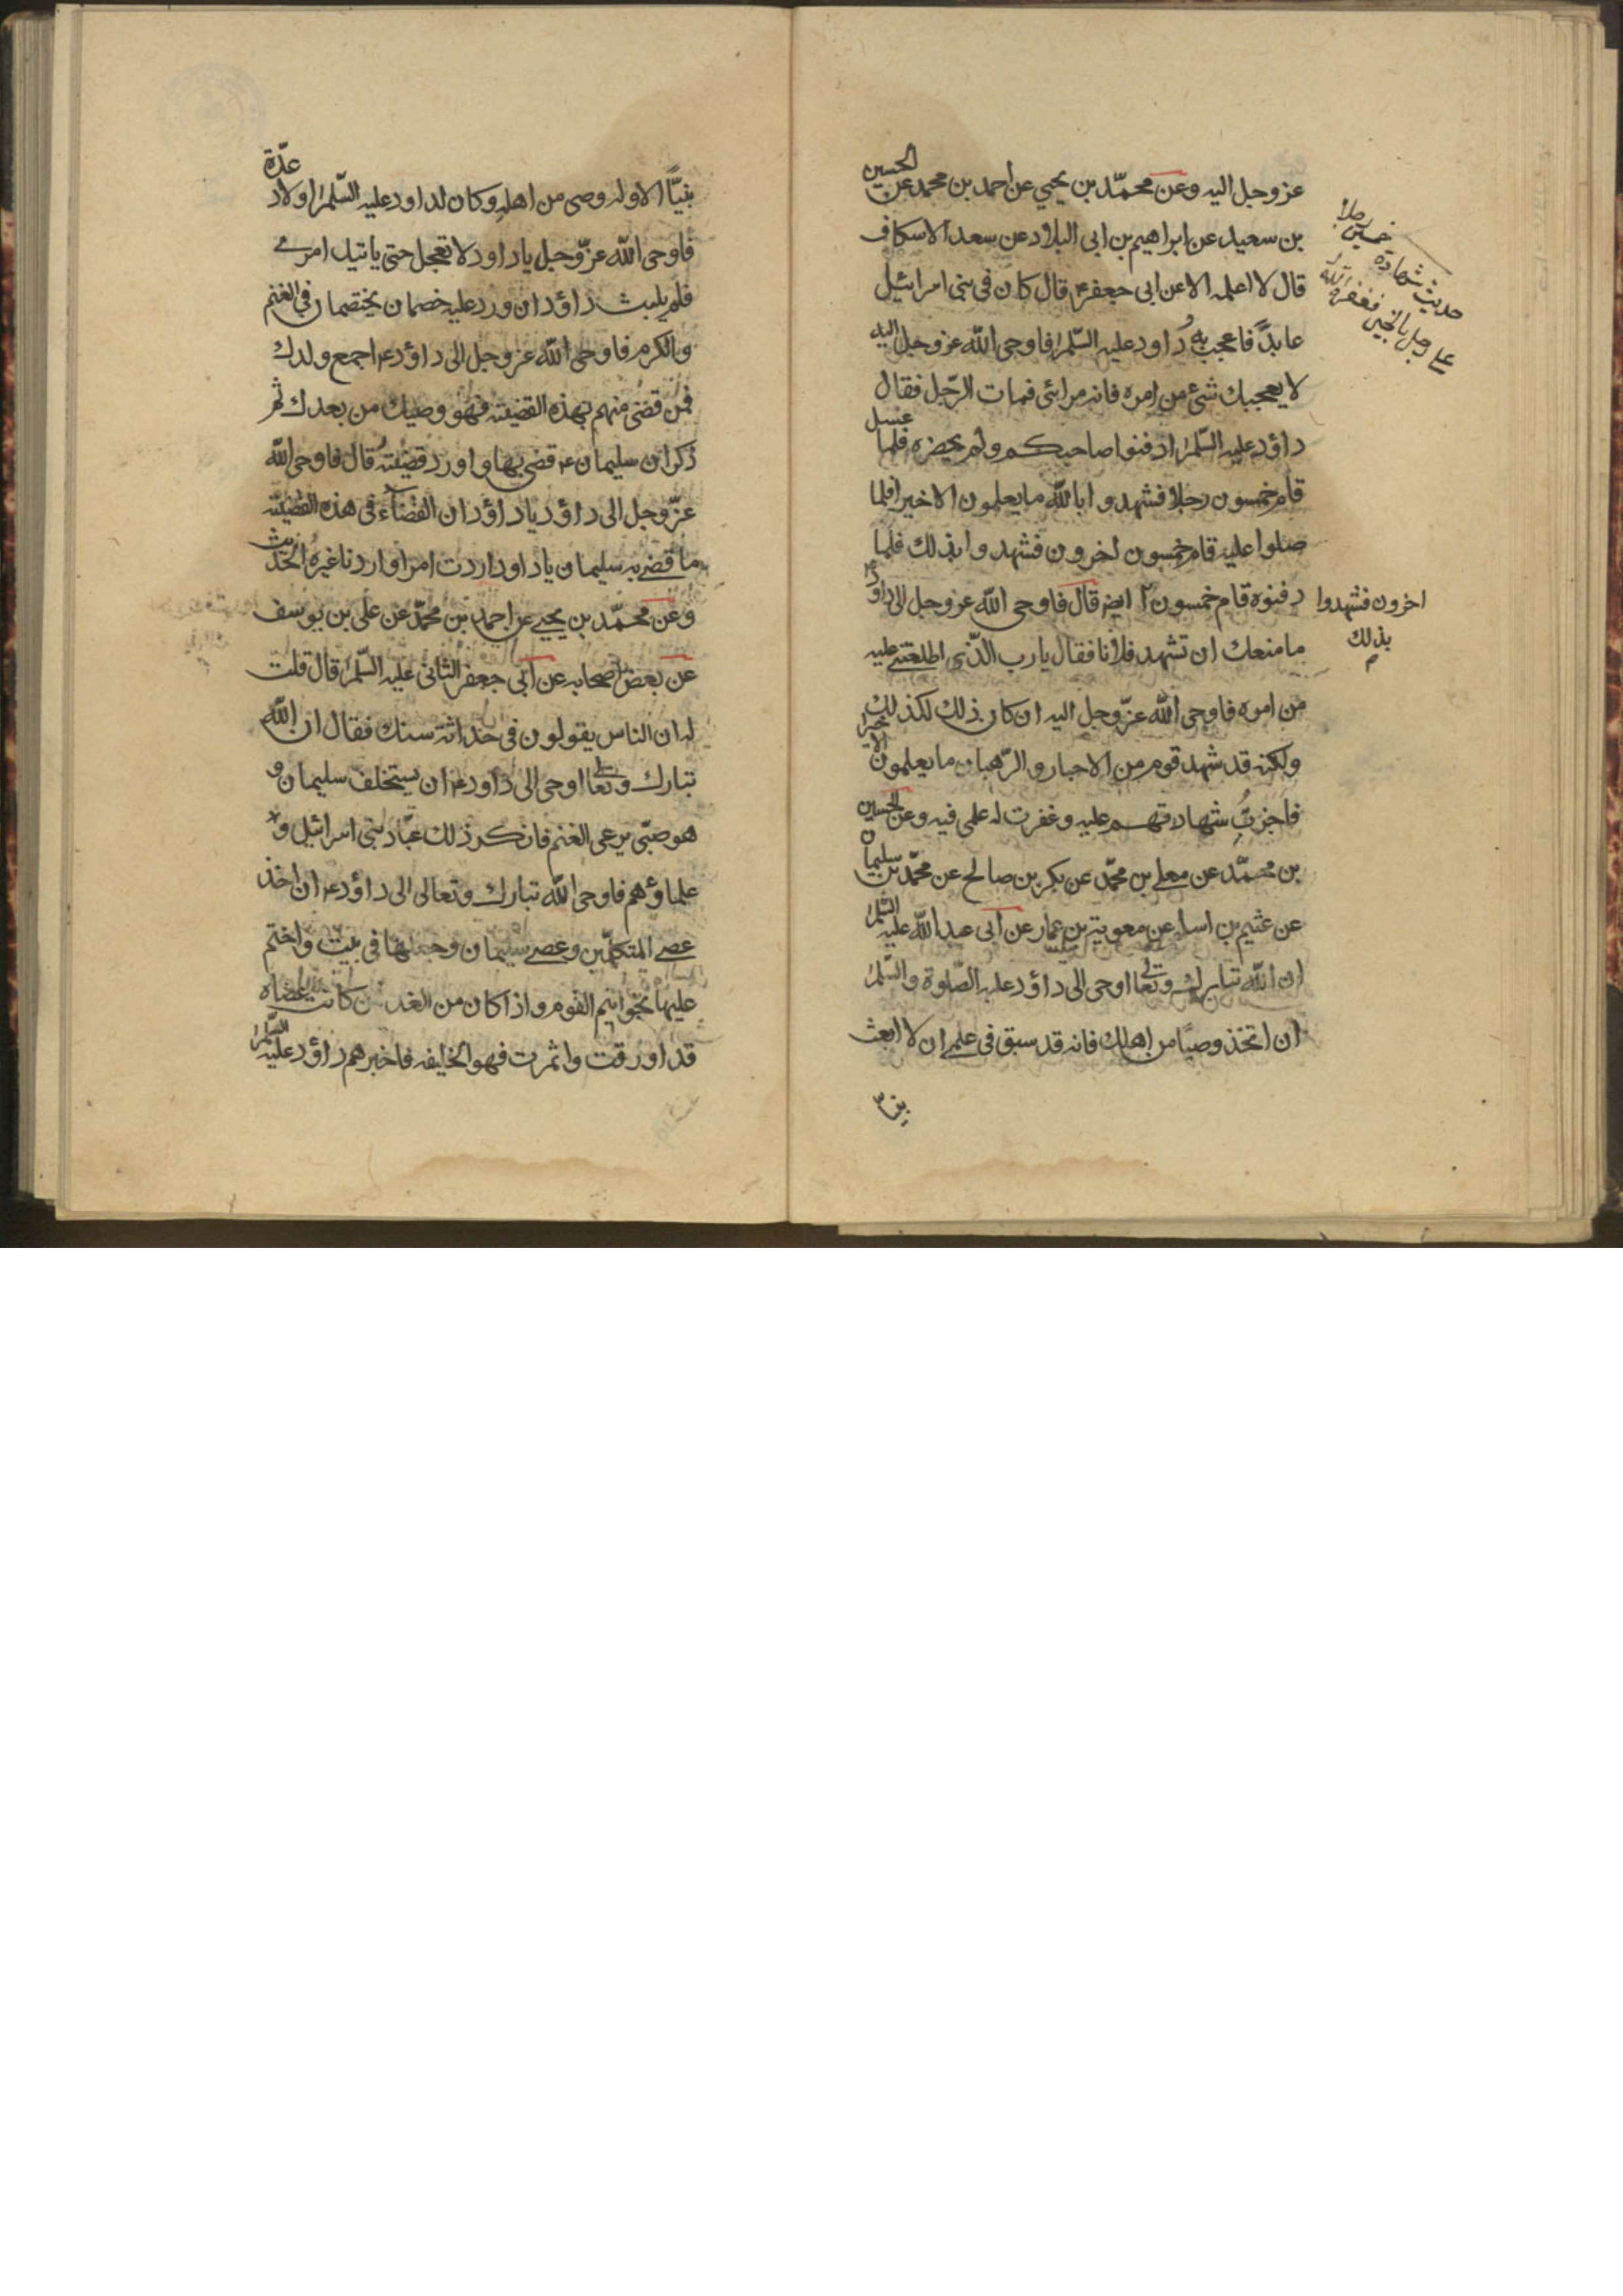 عز وجل اليه وعن محمّد بن يحيي عن احمد بن محمد عن الحسين
بن سعيد عن ابراهيم بن ابى البلاد عن سعد الاسكاف
قال لا اعلمه الا عن ابى جعفر ع قال كان فى بنى اسرائيل
عابدً فاعجب به داود عليه السّلم فاوحى الله عز وجل اليه
لا يعجبك شئ من امره فانه مرائى فمات الرّجل فقال
داؤد عليه السّلم ادفنوا صاحبكم ولم يحضره فلما غسل
قام خمسون رجلا فشهدوا بالله ما يعلمون الا خيرا فلما
صلوا عليه قام خمسون اخرون فشهدوا بذلك فلما
دفنوه قام خمسون ايضا قال فاوحى الله عز وجل الى داود ع
ما منعك ان تشهد فلانا فقال يا رب الذّى اطلعتنى عليه
من امره فاوحى الله عزّ وجل اليه ان كان ذلك لكذلك
ولكنه قد شهد قوم من الاحبار والرّهبان ما يعلمون الا خيرا
فاجزتُ شهادتهم عليه وغفرت له علمى فيه وعن الحسين
بن محمّد عن معلى بن محمّد عن بكر بن صالح عن محمّد بن سليمان
عن عثيم بن اسلم عن معوية بن عمار عن ابى عبد الله عليه السّلم
ان الله تبارك وتعالى اوحى الى داؤد عليه الصّلوة والسّلم
ان اتخذ وصيّا من اهلك فانه قد سبق فى علمى ان لا ابعث
حديث شهادة خمسين رجلا
على رجل بالخير فغفر الله
اخرون فشهدوا
بذلك
م
نبيّا
نبيّاً الا وله وصى من اهله وكان لداود عليه السّلم اولاد عدّة
فاوحى الله عزّ وجل يا داود لا تعجل حتى ياتيك امرى
فلم يلبث داؤد ان ورد عليه خصمان يختصمان فى الغنم
والكرم فاوحى الله عز وجل الى داؤد ع اجمع ولدك
فمن قضى منهم بهذه القضيّة فهو وصيك من بعدك ثم
ذكر ان سليمان ع قضى بها واورد قضيته قال فاوحى الله
عزّ وجل الى داؤد يا داؤد ان القضاء فى هذه القضيّة
ما قضى به سليمان يا داود اردت امرا واردنا غيره الحديث
وعن محمّد بن يحيى عن احمد بن محمّد عن على بن يوسف
عن بعض اصحابه عن ابى جعفر الثانى عليه السّلم قال قلت
له ان الناس يقولون فى حداثة سنك فقال ان الله
تبارك وتعالى اوحى الى داود ع ان يستخلف سليمان و
هو صبّى يرعى الغنم فانكر ذلك عبّاد بنى اسرائيل و
علماؤهم فاوحى الله تبارك وتعالى الى داؤد ع ان اخذ
عصى المتكلّمين وعصى سليمان وجعلها فى بيت واختم
عليها بخواتيم القوم واذا كان من الغد من كانت عصاه
قد اورقت واثمرت فهو الخليفه فاخبرهم داؤد عليه السّلم